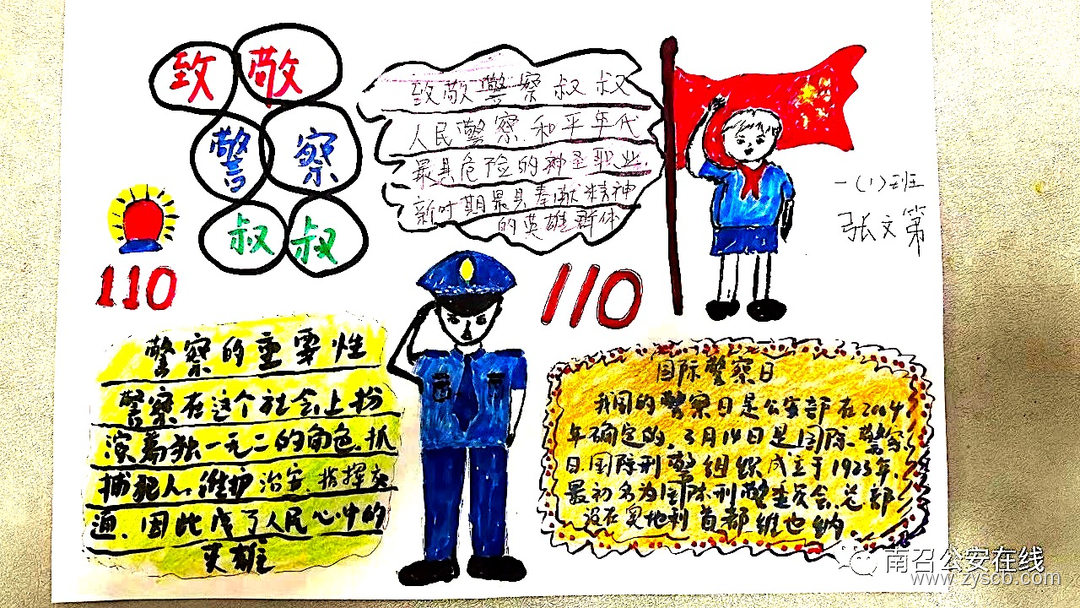 致敬
警察
叔叔
110
致敬警察叔叔
人民警察和平年代
最具危险的神圣职业,
新时期最具奉献精神
的英雄群体
一(1)班
张文第
110
警察的重要性
警察在这个社会上扮
演着独一无二的角色,抓
捕犯人,维护治安,指挥交
通,因此成了人民心中的
英雄
国际警察日
我国的警察日是公安部在2004
年确定的,3月14日是国际警察
日,国际刑警组织成立于1923年,
最初名为国际刑警委员会,总部
设在奥地利首都维也纳.
南召公安在线
www.zyscb.com